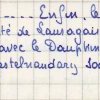 Enfin, le
té de Lauragais
avec le Dauphin
astelnaudary